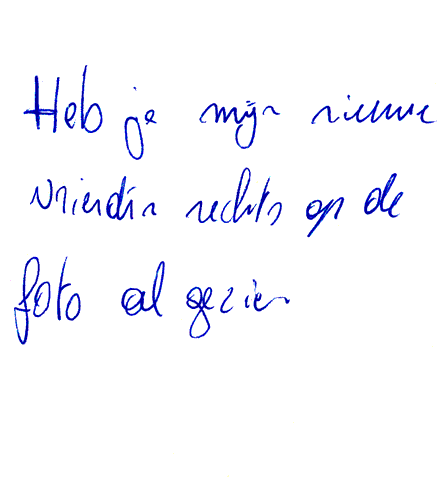 Heb je mijn nieuwe
vriendin rechts op de
foto al gezien